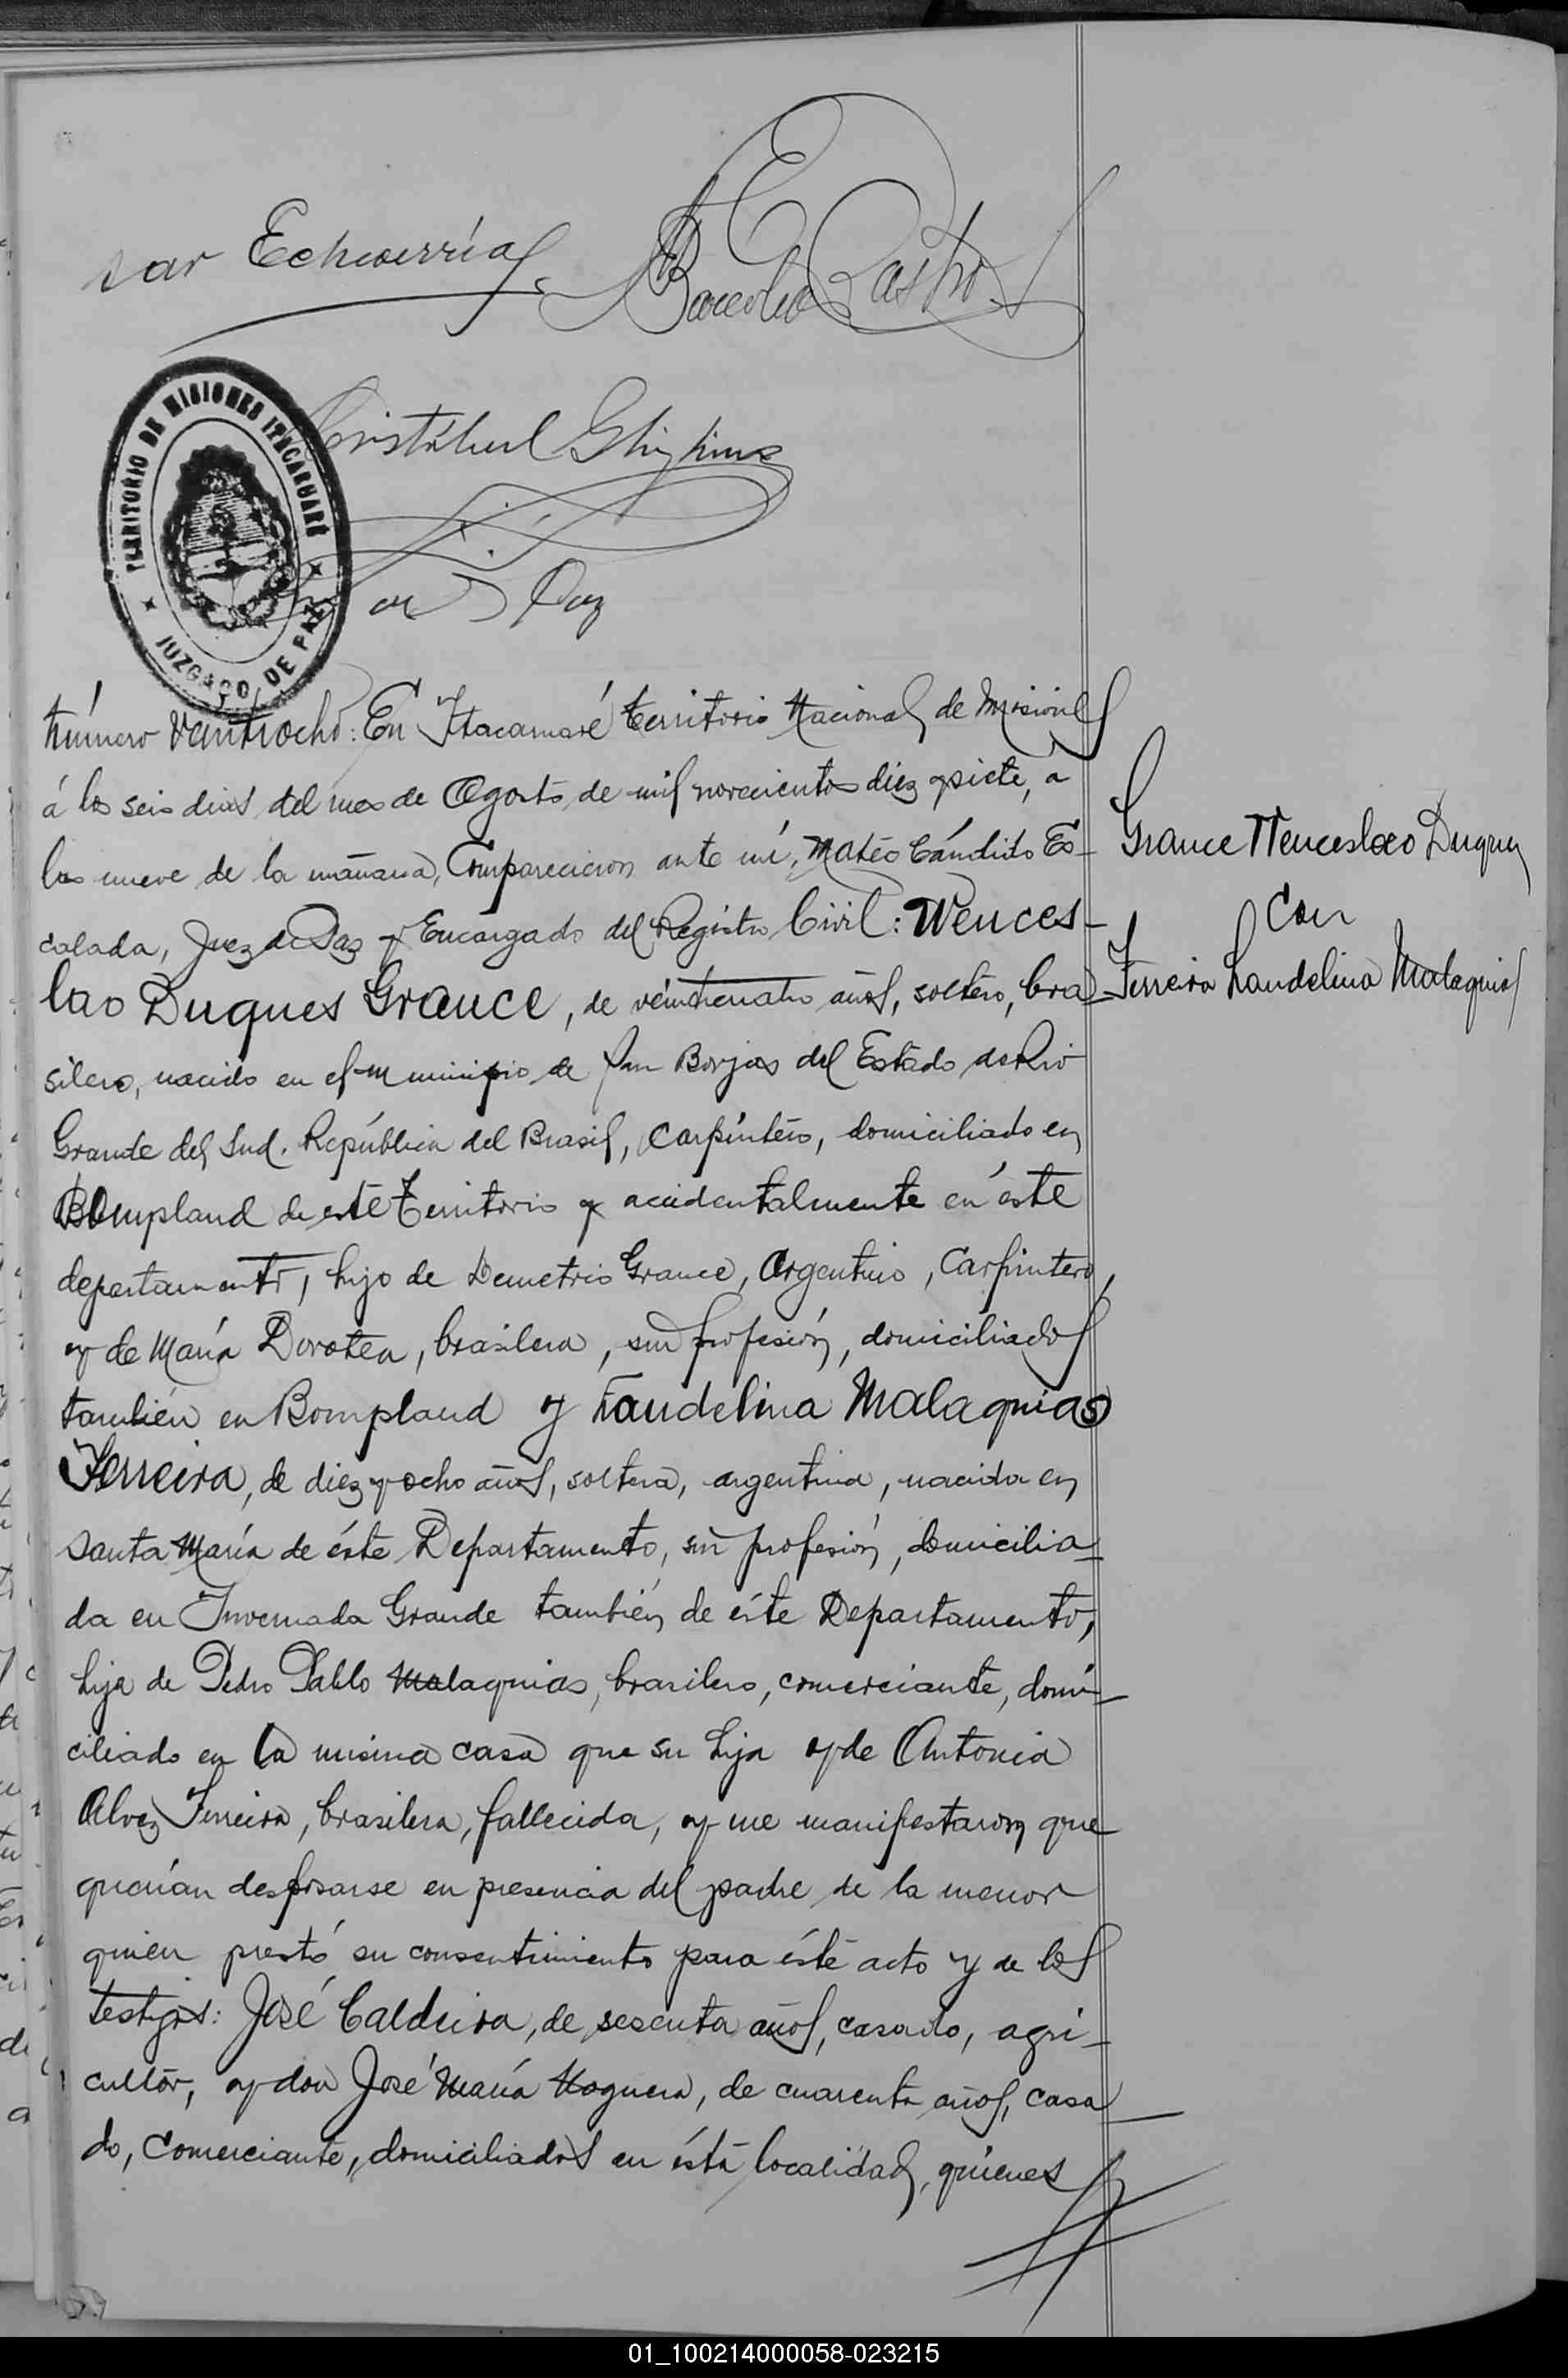 sar Echeverría
Castro
Cristóbal
TERRITORIO DE MISIONES ITACARUARÉ
JUZGADO DE PAZ
Paz
Número veintiocho: En Itacaruaré territorio Nacional de Misiones
á los seis dias del mes de Agosto de mil novecientos diez y siete, a
las nueve de la mañana, Comparecieron ante mí, Matéo Cándido Es-
calada, Juez de Paz y Encargado del Registro Civil: Wences-
lao Duques Grance, de veinticuatro años, soltero, bra-
silero, nacido en el municipio de San Borjas del Estado de Rio
Grande del Sud. República del Brasil, carpintero, domiciliado en
Bompland de este territorio y accidentalmente en éste
departamento, hijo de Demetrio Grance, Argentino, Carpintero,
y de María Dorotea, brasilera, sin profesión, domiciliados
también en Bompland y Landelina Malaquias
Ferreira, de diez y ocho años, soltera, argentina, nacida en
Santa María de éste Departamento, sin profesión, domicilia-
da en Invernada Grande también de éste Departamento,
hija de Pedro Pablo Malaquias, brasilero, comerciante, domi-
ciliado en la misma casa que su hija y de Antonia
Alvez Ferreira, brasilera, fallecida, y me manifestaron que
querían desposarse en presencia del padre de la menor
quien prestó su consentimiento para éste acto y de los
testigos: José Caldeira, de sesenta años, casado, agri-
cultor, y don José María Noguera, de cuarenta años, casa-
do, Comerciante, domiciliados en ésta localidad, quienes
Grance Wenceslao Duques
Con
Ferreira Landelina Malaquias
01_100214000058-023215